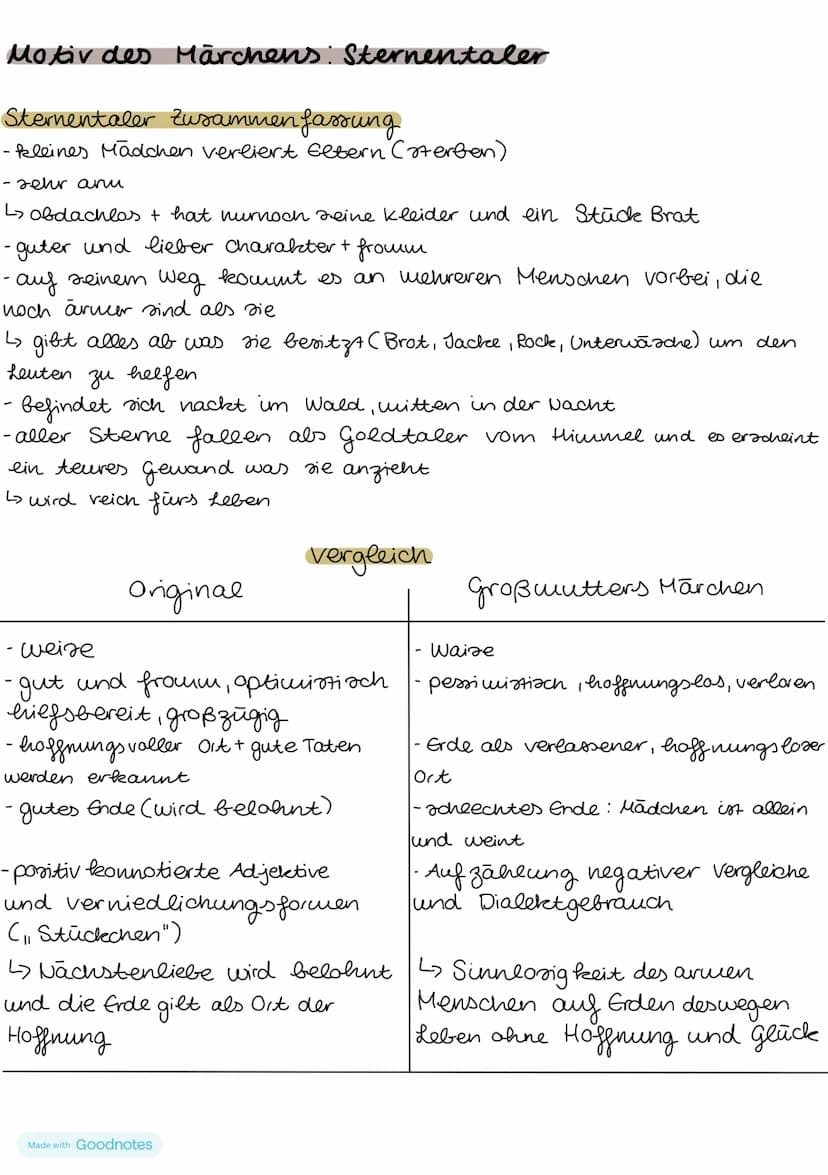 Motiv des Märchens: Sternentaler
Sternentaler Zusammenfassung
- kleines Mädchen verliert Eltern (sterben)
- sehr arm
↳ obdachlos + hat nurnoch seine Kleider und ein Stück Brot
- guter und lieber Charakter + fromm
- auf seinem Weg kommt es an mehreren Menschen vorbei, die
noch ärmer sind als sie
↳ gibt alles ab was sie besitzt (Brot, Jacke, Rock, Unterwäsche) um den
Leuten zu helfen
- Befindet sich nackt im Wald, mitten in der Nacht
- aller Sterne fallen als Goldtaler vom Himmel und es erscheint
ein teures Gewand was sie anzieht
↳ wird reich fürs Leben
Vergleich
Original
- Weise
- gut und fromm, optimistisch
hilfsbereit, großzügig
- hoffnungsvoller Ort + gute Taten
werden erkannt
- gutes Ende (wird belohnt)
- positiv konnotierte Adjektive
und Verniedlichungsformen
(„Stückchen")
↳ Nächstenliebe wird belohnt
und die Erde gilt als Ort der
Hoffnung
Großmutters Märchen
- Waise
- pessimistisch, hoffnungslos, verloren
- Erde als verlassener, hoffnungsloser
Ort
- schlechtes Ende: Mädchen ist allein
und weint
- Aufzählung negativer Vergleiche
und Dialektgebrauch
↳ Sinnlosigkeit des armen
Menschen auf Erden deswegen
Leben ohne Hoffnung und Glück
Made with Goodnotes